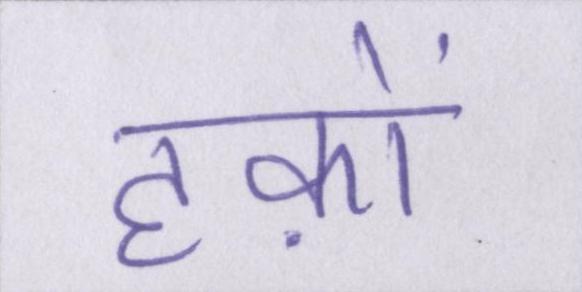 हक़ों